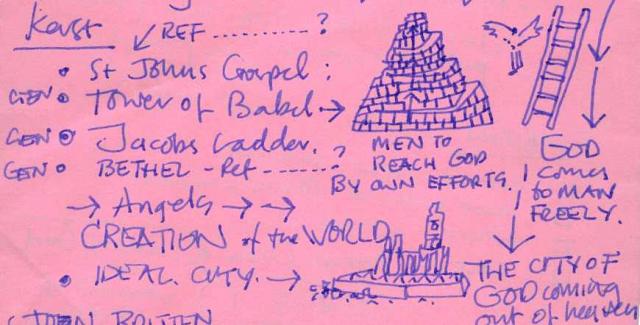 REF ..........?
• St Johns Gospel :
GEN • Tower of Babel. →
GEN • Jacobs Ladder.
GEN • BETHEL - Ref ------- ?
→ Angels → →
CREATION of the WORLD
• IDEAL CITY. →
MEN TO
REACH GOD
BY OWN EFFORTS.
GOD
comes
to MAN
FREELY.
THE CITY OF
GOD coming
out of heaven